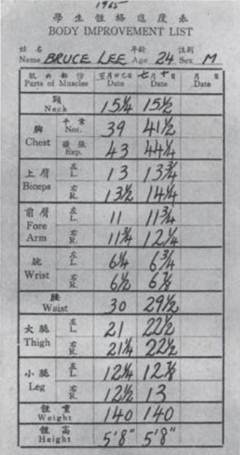 1965
學生體格進度表
BODY IMPROVEMENT LIST
姓名 年齡 性別
Name BRUCE LEE Age 24 Sex M
肌肉部份 月廿七日 七月十日 月 日
Parts of Muscles Date Date Date
頸
Neck 15¼ 15½
胸 平常
Chest Nor. 39 41½
Exp. 43 44¼
上臂 左
Biceps L. 13 13¾
右
R. 13½ 14¼
前臂 左
Fore L. 11 11¾
Arm 右
R. 11¾ 12¼
腕 左
Wrist L. 6¼ 6¾
右
R. 6½ 6⅞
腰
Waist 30 29½
大腿 左
Thigh L. 21 22½
右
R. 21¼ 22½
小腿 左
Leg L. 12¼ 12⅞
右
R. 12½ 13
體重
Weight 140 140
體高
Height 5'8" 5'8"